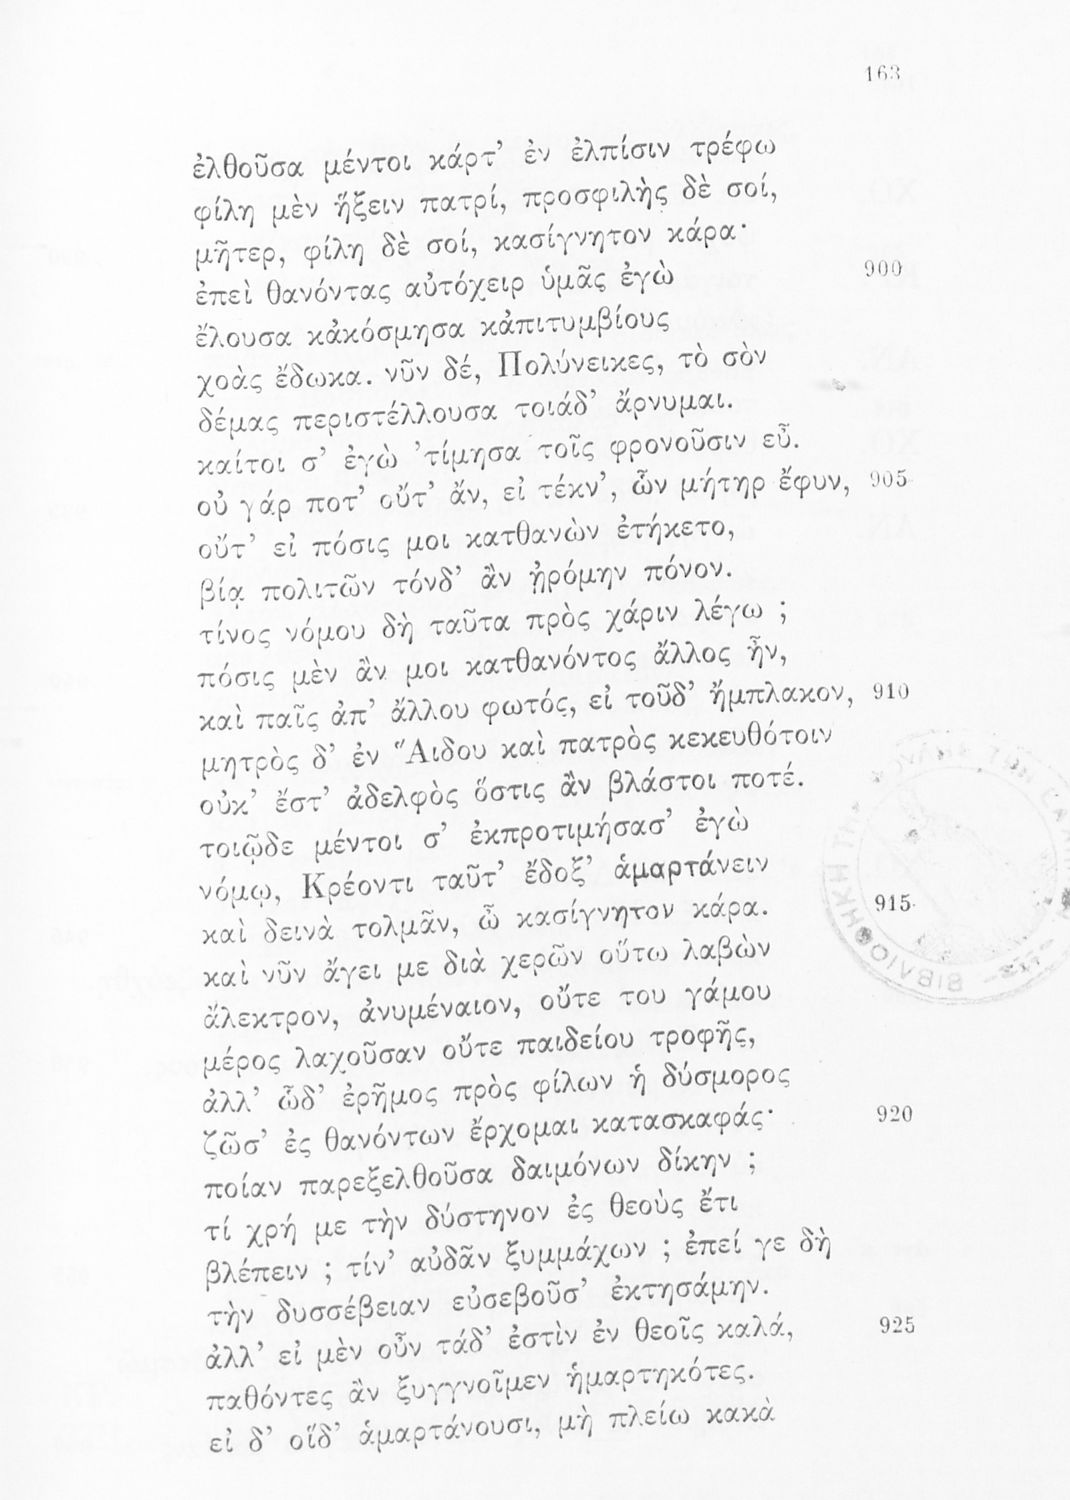 163
ἐλθοῦσα μέντοι κάρτ’ ἐν ἐλπίσιν τρέφω
φίλη μὲν ἥξειν πατρί, προσφιλὴς δὲ σοί,
μῆτερ, φίλη δὲ σοί, κασίγνητον κάρα·
ἐπεὶ θανόντας αὐτόχειρ ὑμᾶς ἐγὼ 900
ἔλουσα κἀκόσμησα κἀπιτυμβίους
χοὰς ἔδωκα. νῦν δέ, Πολύνεικες, τὸ σὸν
δέμας περιστέλλουσα τοιάδ’ ἄρνυμαι.
καίτοι σ’ ἐγὼ ’τίμησα τοῖς φρονοῦσιν εὖ.
οὐ γάρ ποτ’ οὔτ’ ἄν, εἰ τέκν’, ὧν μήτηρ ἔφυν, 905
οὔτ’ εἰ πόσις μοι κατθανὼν ἐτήκετο,
βίᾳ πολιτῶν τόνδ’ ἂν ᾐρόμην πόνον.
τίνος νόμου δὴ ταῦτα πρὸς χάριν λέγω ;
πόσις μὲν ἄν μοι κατθανόντος ἄλλος ἦν,
καὶ παῖς ἀπ’ ἄλλου φωτός, εἰ τοῦδ’ ἤμπλακον, 910
μητρὸς δ’ ἐν Ἅιδου καὶ πατρὸς κεκευθότοιν
οὐκ’ ἔστ’ ἀδελφὸς ὅστις ἂν βλάστοι ποτέ.
τοιῷδε μέντοι σ’ ἐκπροτιμήσασ’ ἐγὼ
νόμῳ, Κρέοντι ταῦτ’ ἔδοξ’ ἁμαρτάνειν
καὶ δεινὰ τολμᾶν, ὦ κασίγνητον κάρα. 915
καὶ νῦν ἄγει με διὰ χερῶν οὕτω λαβὼν
ἄλεκτρον, ἀνυμέναιον, οὔτε του γάμου
μέρος λαχοῦσαν οὔτε παιδείου τροφῆς,
ἀλλ’ ὧδ’ ἐρῆμος πρὸς φίλων ἡ δύσμορος
ζῶσ’ ἐς θανόντων ἔρχομαι κατασκαφάς· 920
ποίαν παρεξελθοῦσα δαιμόνων δίκην ;
τί χρή με τὴν δύστηνον ἐς θεοὺς ἔτι
βλέπειν ; τίν’ αὐδᾶν ξυμμάχων ; ἐπεί γε δὴ
τὴν δυσσέβειαν εὐσεβοῦσ’ ἐκτησάμην.
ἀλλ’ εἰ μὲν οὖν τάδ’ ἐστὶν ἐν θεοῖς καλά, 925
παθόντες ἂν ξυγγνοῖμεν ἡμαρτηκότες.
εἰ δ’ οἵδ’ ἁμαρτάνουσι, μὴ πλείω κακὰ
ΒΙΒΛΙΟΘΗΚΗ ΤΗΣ